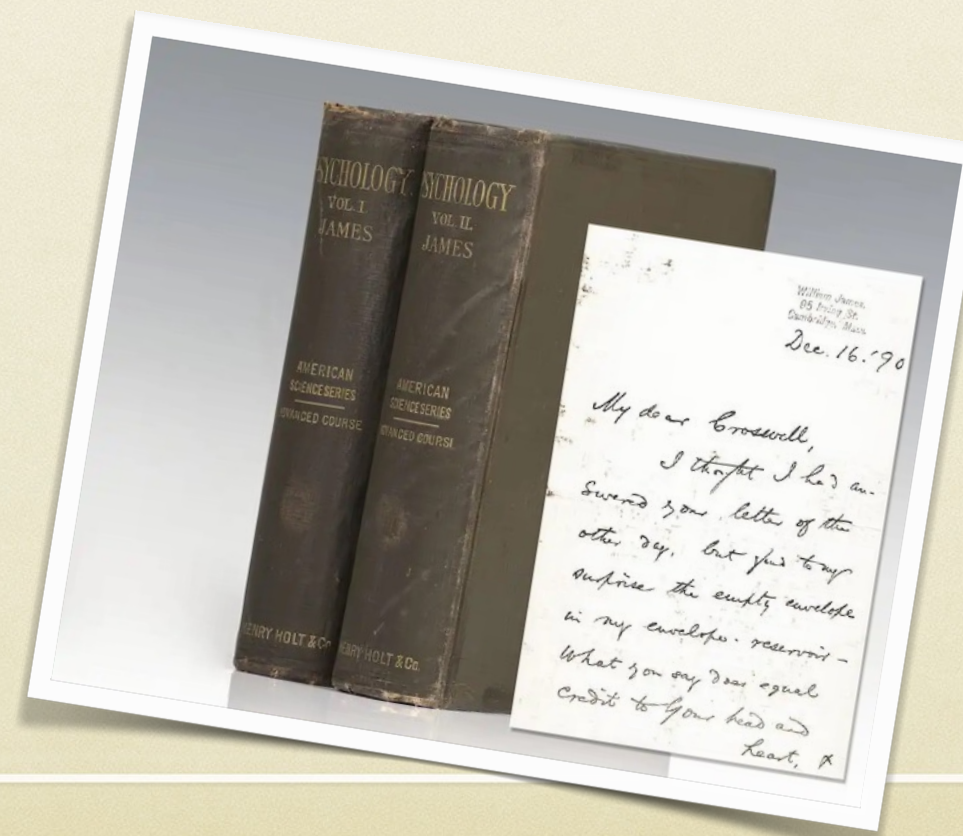 SYCHOLOGY
VOL. I
JAMES
AMERICAN
SCIENCE SERIES
ADVANCED COURSE
HENRY HOLT & Co.
SYCHOLOGY
VOL. II.
JAMES
AMERICAN
SCIENCE SERIES
ADVANCED COURSE
HENRY HOLT & Co.
William James,
95 Irving St.
Cambridge, Mass
Dec. 16. '90
My dear Croswell,
I thought I had an-
swered your letter of the
other day, but find to my
surprise the empty envelope
in my envelope-reservoir –
What you say does equal
credit to your head and
heart, &